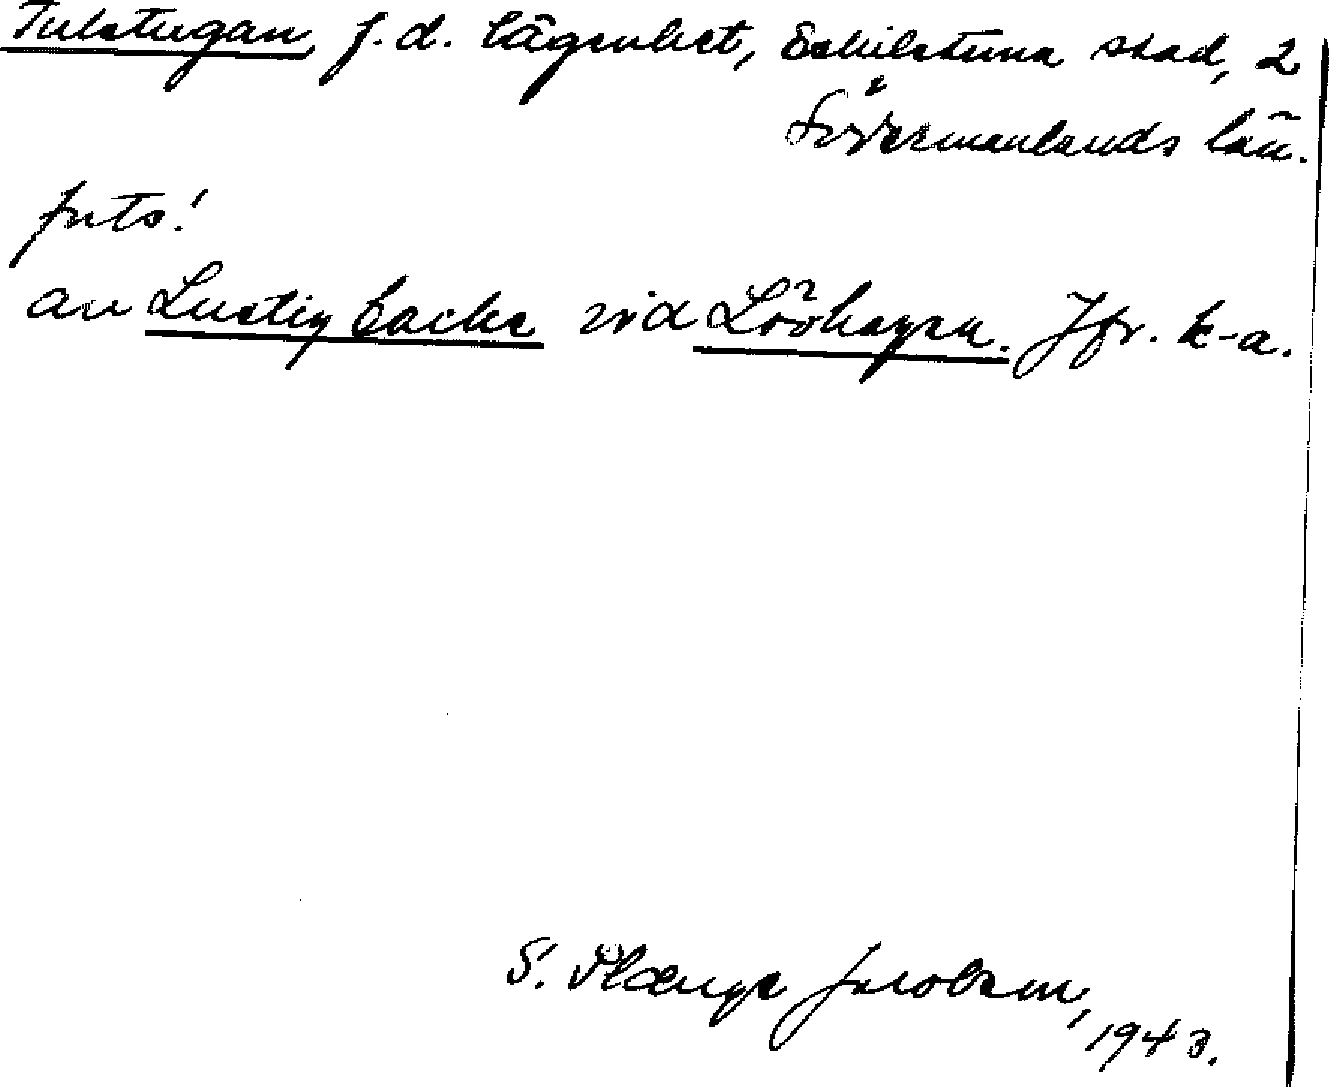 Tulstugan, f.d. lägenhet, Eskilstuna stad, 2
Södermanlands län.
forts!
an Lustigbacke vid Lövhagen. Jfr. k-a.
S. Plænge Jacobson,
1943.